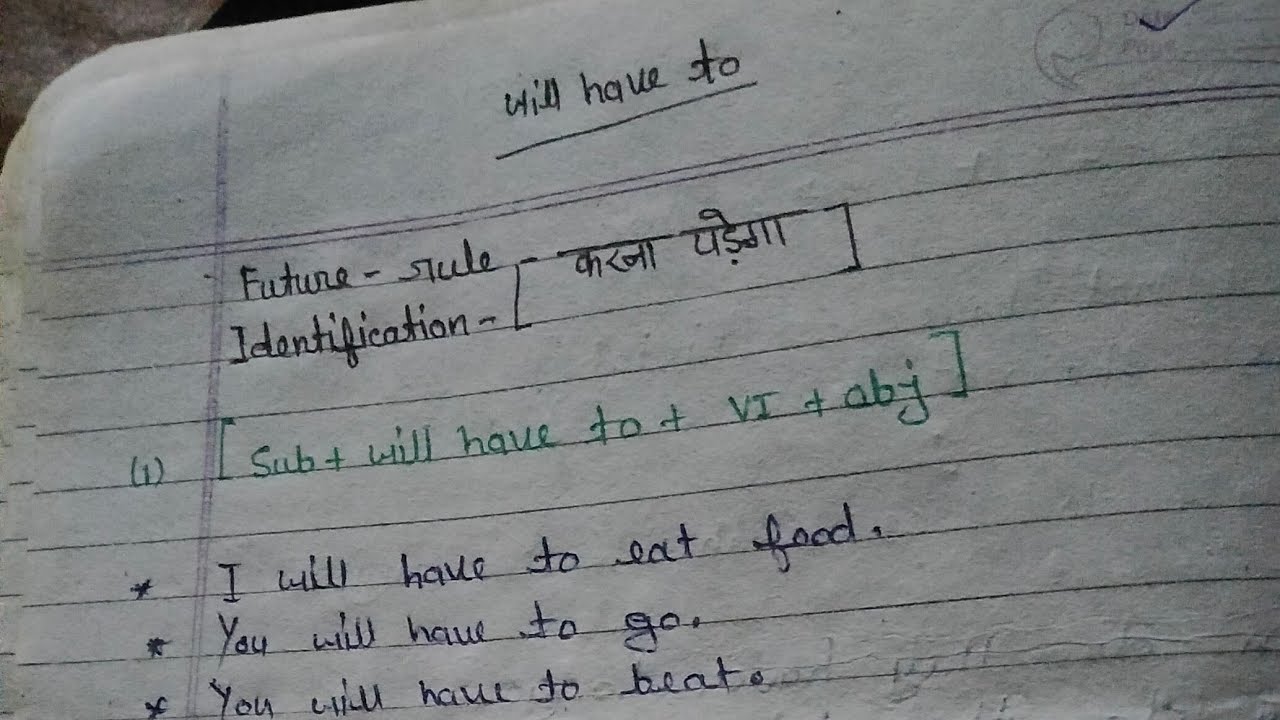 Date
Page
will have to
Future - rule - करना पड़ेगा ]
Identification - [
(1) [ Sub + will have to + VI + obj ]
* I will have to eat food.
* You will have to go.
* You will have to beat.